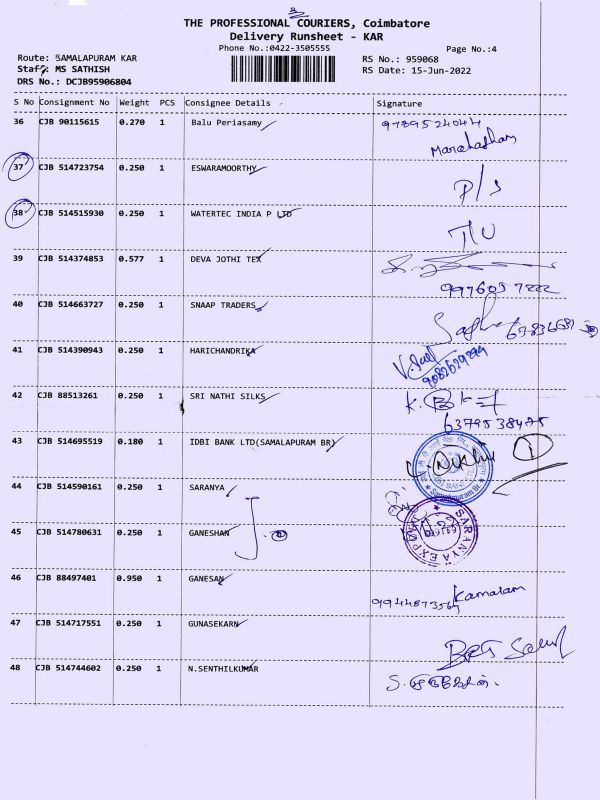 THE PROFESSIONAL COURIERS, Coimbatore
Delivery Runsheet - KAR
Phone No.:0422-3505555
Page No.:4
Route: SAMALAPURAM KAR
RS No.: 959068
Staff: MS SATHISH
RS Date: 15-Jun-2022
DRS No.: DCJB95906804
S No Consignment No Weight PCS Consignee Details Signature
36 CJB 90115615 0.270 1 Balu Periasamy 9789524044
37 CJB 514723754 0.250 1 ESWARAMOORTHY P/S
38 CJB 514515930 0.250 1 WATERTEC INDIA P LTD T/U
39 CJB 514374853 0.577 1 DEVA JOTHI TEX
9976057222
40 CJB 514663727 0.250 1 SNAAP TRADERS
41 CJB 514390943 0.250 1 HARICHANDRIKA
42 CJB 88513261 0.250 1 SRI NATHI SILKS
6379538425
43 CJB 514695519 0.180 1 IDBI BANK LTD(SAMALAPURAM BR) 1
Samalapuram Br.
44 CJB 514590161 0.250 1 SARANYA
45 CJB 514780631 0.250 1 GANESHAN
46 CJB 88497401 0.950 1 GANESAN
9944873564 Kamalam
47 CJB 514717551 0.250 1 GUNASEKARN
48 CJB 514744602 0.250 1 N.SENTHILKUMAR